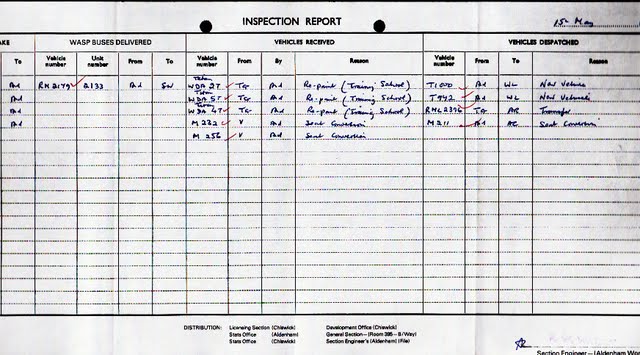 INSPECTION REPORT 15th May
AKE WASP BUSES DELIVERED VEHICLES RECEIVED VEHICLES DISPATCHED
To Vehicle number Unit number From To Vehicle number From By Reason Vehicle number From To Reason
Totem
Ad RM2179 2133 Ad WDA 2T TG Ad Re-paint (Training School) T1072 Ad WL New Vehicle
Ad WDA 5T TG Ad Re-paint (Training School) T942 Ad WL New Vehicle
Ad WDA 4T TG Ad Re-paint (Training School) RML2396 TG AR Transfer
Ad M 232 V Ad Seat Conversion M211 Ad Seat Conversion
M 256 V Ad Seat Conversion
DISTRIBUTION: Licensing Section (Chiswick) Development Office (Chiswick)
Stats Office (Aldenham) General Section – (Room 395 – B/Way)
Stats Office (Chiswick) Section Engineer's (Aldenham) (File)
Section Engineer – (Aldenham Wo